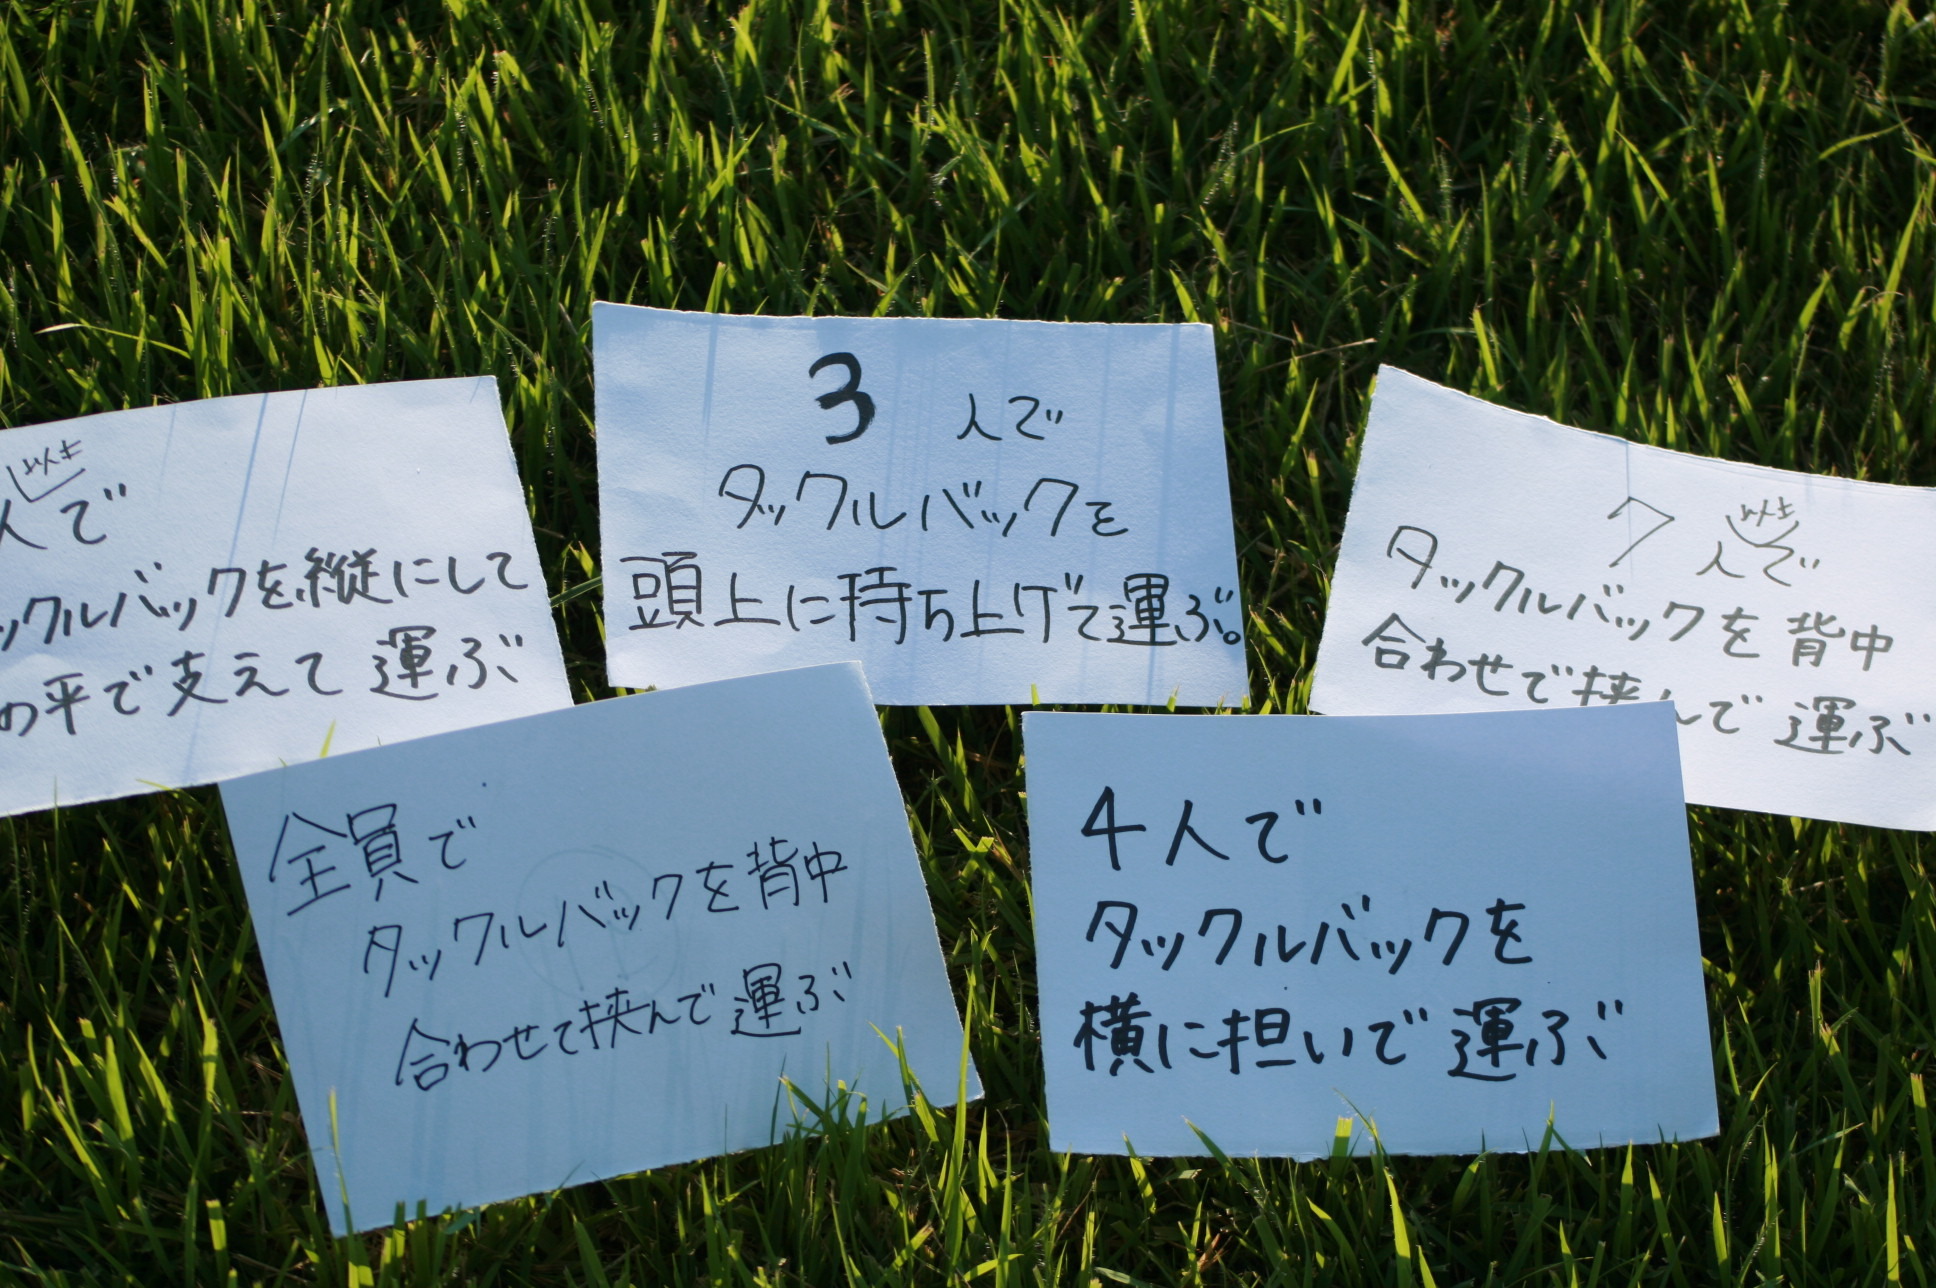 以上
人で
ックルバックを縦にして
の平で支えて運ぶ
3人で
タックルバックを
頭上に持ち上げて運ぶ。
7人で
以上
タックルバックを背中
合わせで挟んで運ぶ
全員で
タックルバックを背中
合わせて挟んで運ぶ
4人で
タックルバックを
横に担いで運ぶ